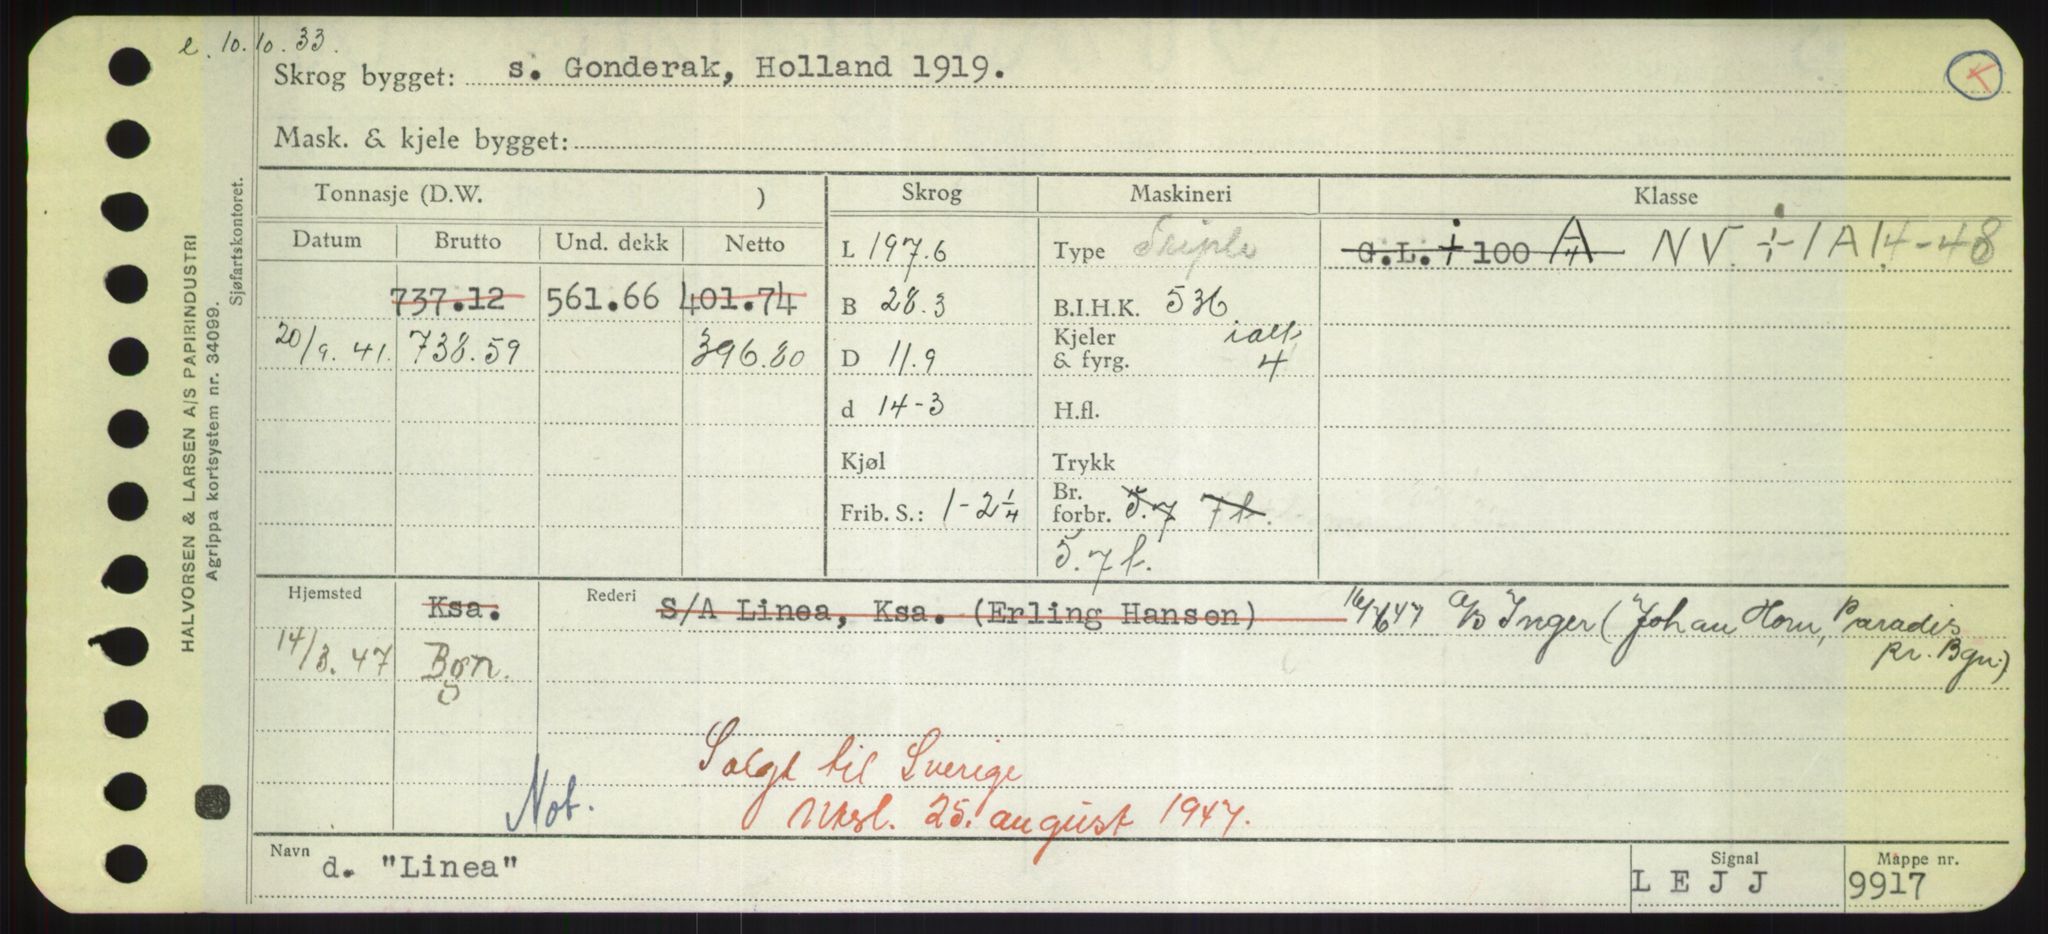 e. 10.10.33.
Skrog bygget: s. Gonderak, Holland 1919.
Mask. & kjele bygget:
HALVORSEN & LARSEN A/S PAPIRINDUSTRI
Agrippa kortsystem nr. 34099.
Sjøfartskontoret.
Tonnasje (D.W. ) Skrog Maskineri Klasse
Datum Brutto Und. dekk Netto
L 197.6 Type Triple G.L. 100 A/4 NV 1A1 4-48
737.12 561.66 401.74 B 28.3 B.I.H.K. 536
20/9.41. 738.59 396.80 D 11.9 Kjeler & fyrg. ialt 4
d 14-3 H.fl.
Kjøl Trykk
Frib. S.: 1-2 1/4 Br. forbr. 5.7 7t.
5.7 t.
Hjemsted Ksa. Rederi S/A Linea, Ksa. (Erling Hansen) 16/6 47 A/S Inger (Johan Horn, Paradis
pr. Bgn.)
14/3.47 Bgn.
Solgt til Sverige
Not. Utksl. 25. august 1947.
Navn d. "Linea" Signal L E J J Mappe nr. 9917